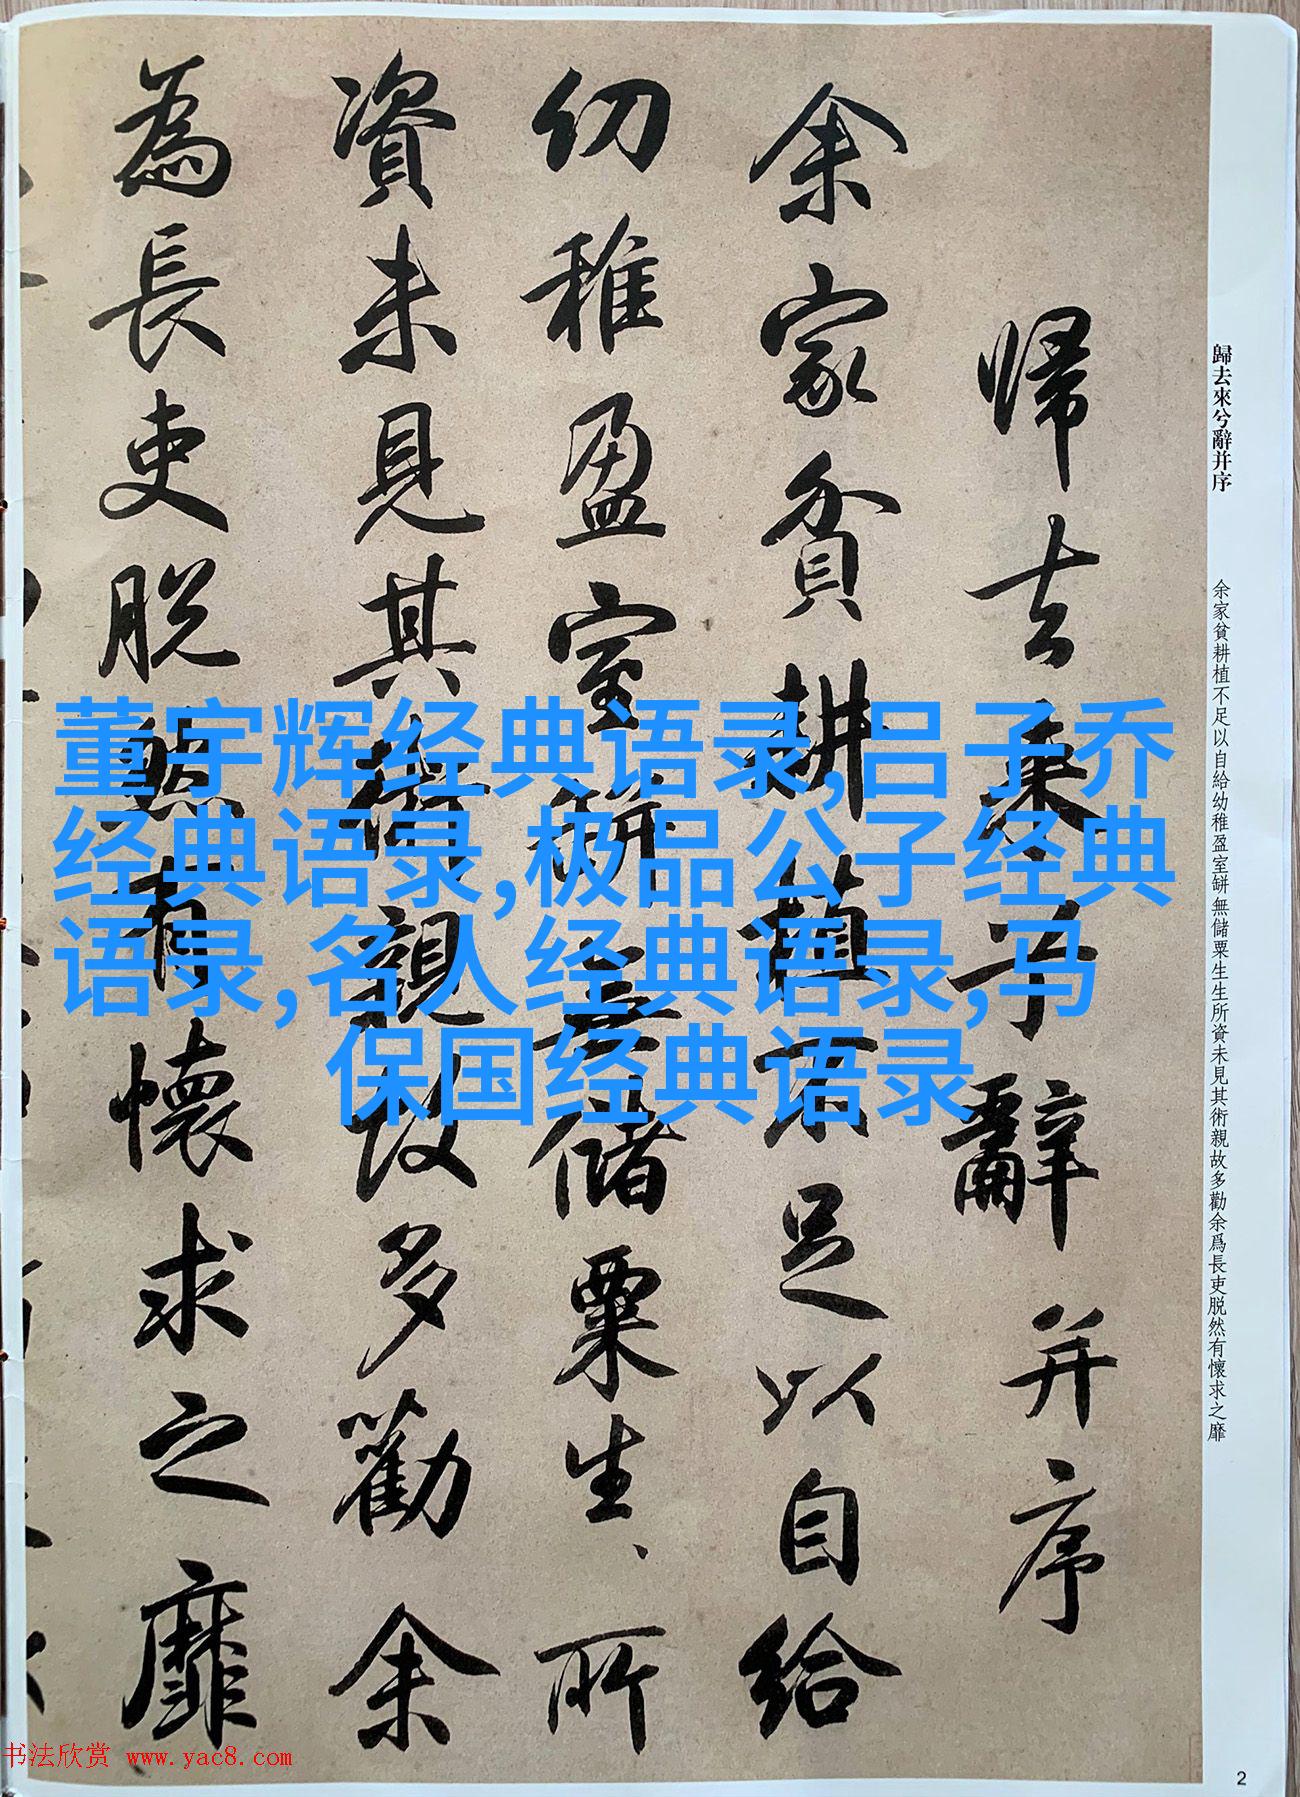 歸去來兮辭并序
余家貧耕植不足以自給幼稚盈室缾無儲粟生生所資未見其術親故多勸余爲長吏脱然有懷求之靡
帰去来兮辭并序
余家貧耕植不足以自給
幼稚盈室缾無儲粟生、所
資未見其術親故多勸余
為長吏脱然有懷求之靡
董宇辉经典语录,吕子乔
经典语录,极品公子经典
语录,名人经典语录,马
保国经典语录
书法欣赏 www.yac8.com
2